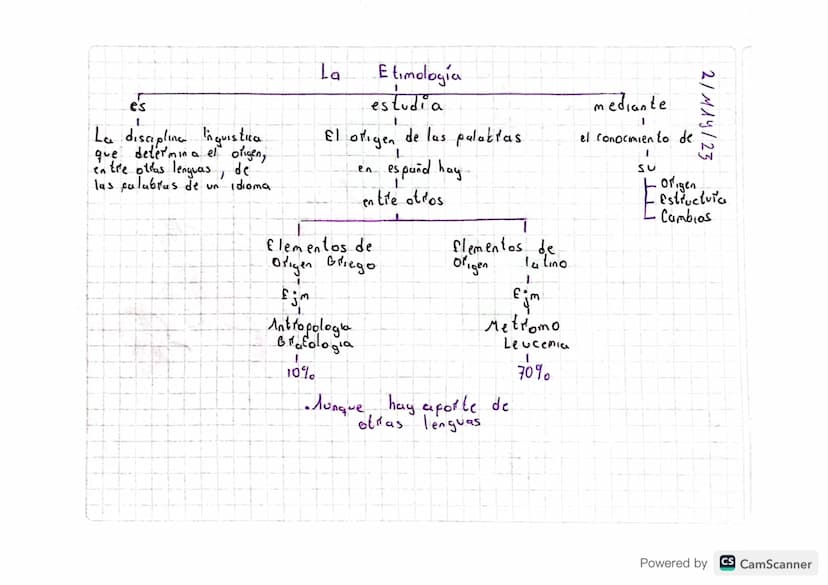 La Etimología
2/MAY/23
és
estudia
mediante
La disciplina linguistica
que determina el origen,
entre otras lenguas, de
las palabras de un idioma
El origen de las palabras
en español hay
entre otros
el conocmiento de
su
Origen
Estructura
Cambios
Elementos de
Origen Griego
Ejm
Antropologia
Grafología
10%
Elementos de
Origen latino
Ejm
Metromo
Leucemia
70%
.Aunque hay aporte de
otras lenguas
Powered by CS CamScanner